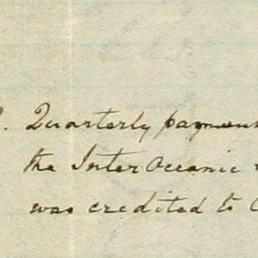 . Quarterly paymen
the InterOceanic
was credited to